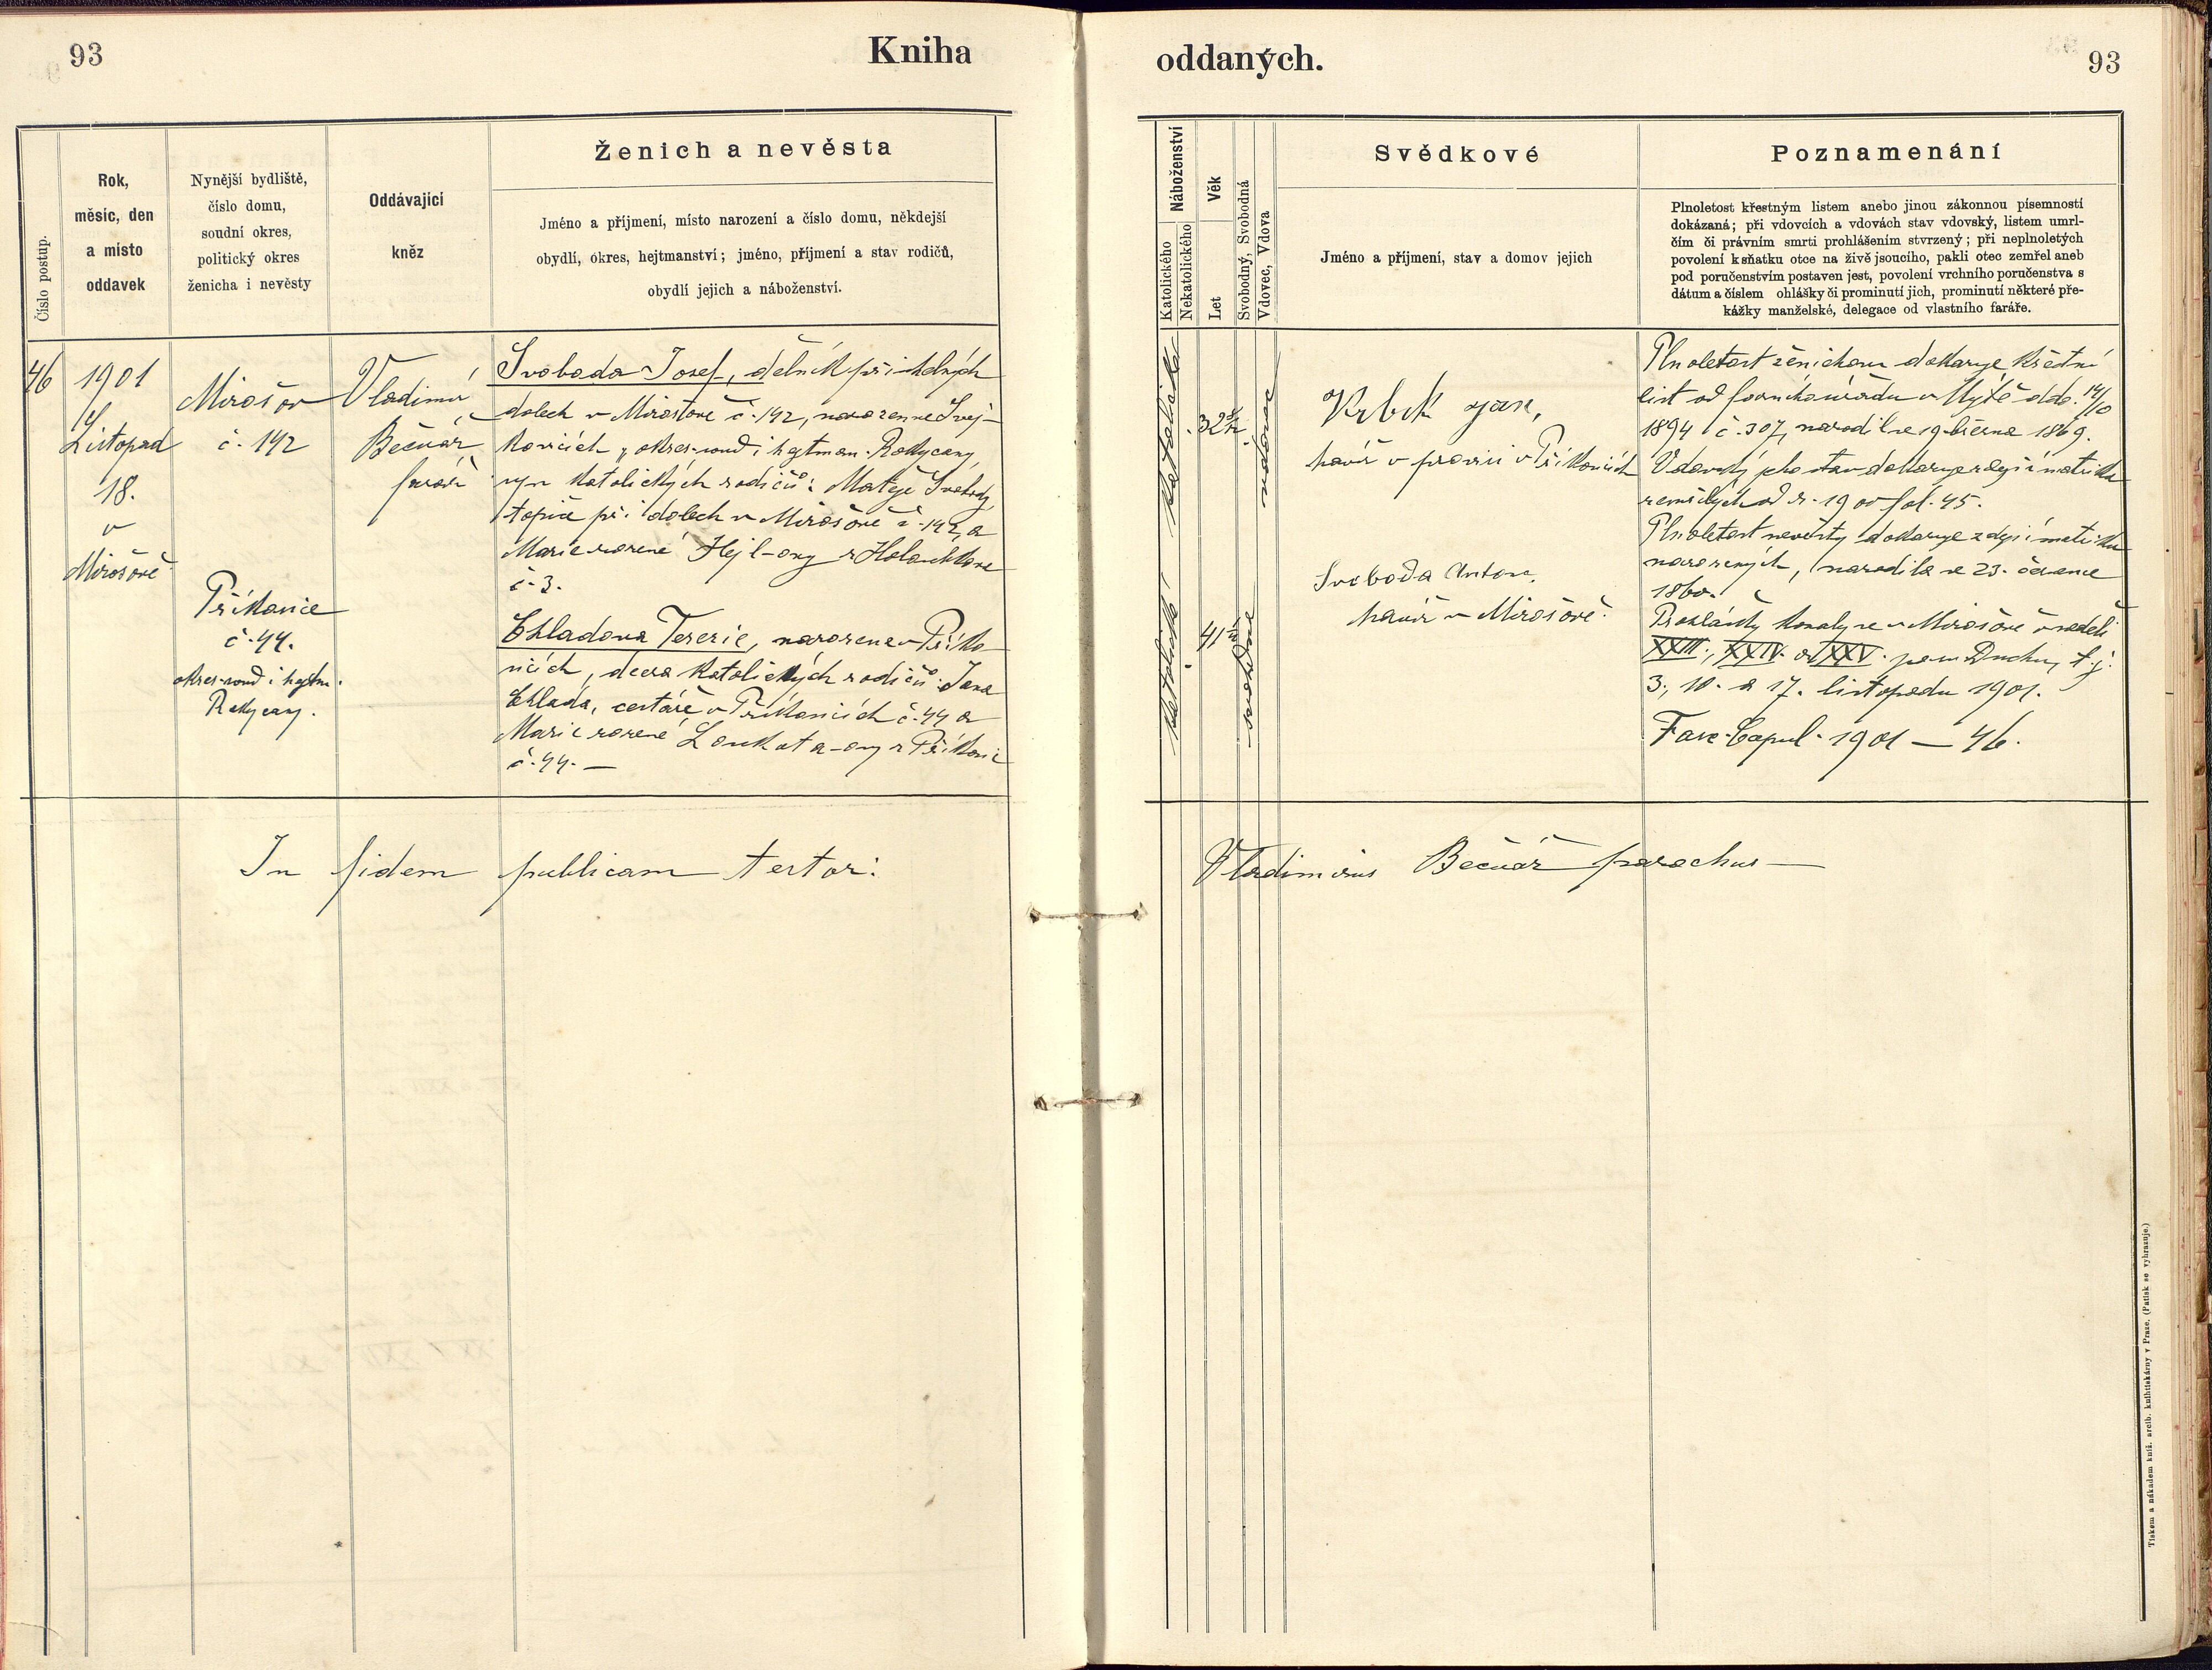 93
Kniha
oddaných.
93
Číslo postup.
Rok,
měsíc, den
a místo
oddavek
Nynější bydliště,
číslo domu,
soudní okres,
politický okres
ženicha i nevěsty
Oddávající
kněz
Ženich a nevěsta
Jméno a příjmení, místo narození a číslo domu, někdejší
obydlí, okres, hejtmanství; jméno, příjmení a stav rodičů,
obydlí jejich a náboženství.
Náboženství
Katolického
Nekatolického
Věk
Let
Svobodný, Svobodná
Vdovec, Vdova
Svědkové
Jméno a příjmení, stav a domov jejich
Poznamenání
Plnoletost křestným listem anebo jinou zákonnou písemností
dokázaná; při vdovcích a vdovách stav vdovský, listem umrl-
čím či právním smrti prohlášením stvrzený; při neplnoletých
povolení k sňatku otce na živě jsoucího, pakli otec zemřel aneb
pod poručenstvím postaven jest, povolení vrchního poručenstva s
dátum a číslem ohlášky či prominutí jich, prominutí některé pře-
kážky manželské, delegace od vlastního faráře.
46
1901
Listopad
18.
v
Mirošově
Mirošov
č. 192
Příkosice
č. 44.
okres soud i hejtm.
Rokycany.
Vladimír
Bečvář,
farář
Svoboda Josef, dělník při uhelných
dolech v Mirošově č. 192, narozen ve Svej-
kovicích, okres soud i hejtman. Rokycany,
syn katolických rodičů: Matěje Svobody,
topiče při dolech v Mirošově č. 192, a
Marie rozené Hejl-ovy z Holoubkova
č. 3.
Chladova Terezie, narozena v Příko-
sicích, dcera katolických rodičů: Jana
Chlada, cestáře v Příkosicích č. 44 a
Marie rozené Loukota-ovy z Příkosic
č. 44. —
katolické
32
vdovec
katolické
41
svobodná
Vrbík Jan,
havíř v Příkosicích
Svoboda Anton,
havíř v Mirošově.
Plnoletost ženichovu dokazuje křestní
list od farního úřadu v Mýtě ddo. 14/10
1894 č. 307, narodil se 19. března 1869.
Vdovský jeho stav dokazuje zdejší matrika
zemřelých od r. 1900 fol. 45.
Plnoletost nevěsty dokazuje zdejší matrika
narozených, narodila se 23. července
1860.
Prohlášky konaly se v Mirošově v neděli
XXIII., XXIV. a XXV. po sv. Duchu, t. j.
3., 10. a 17. listopadu 1901.
Fasc. Copul. 1901 — 46.
In fidem publicam testor:
Vladimirus Bečvář parochus —
Tiskem a nákladem kníž. arcib. knihtiskárny v Praze. (Patisk se vyhrazuje.)